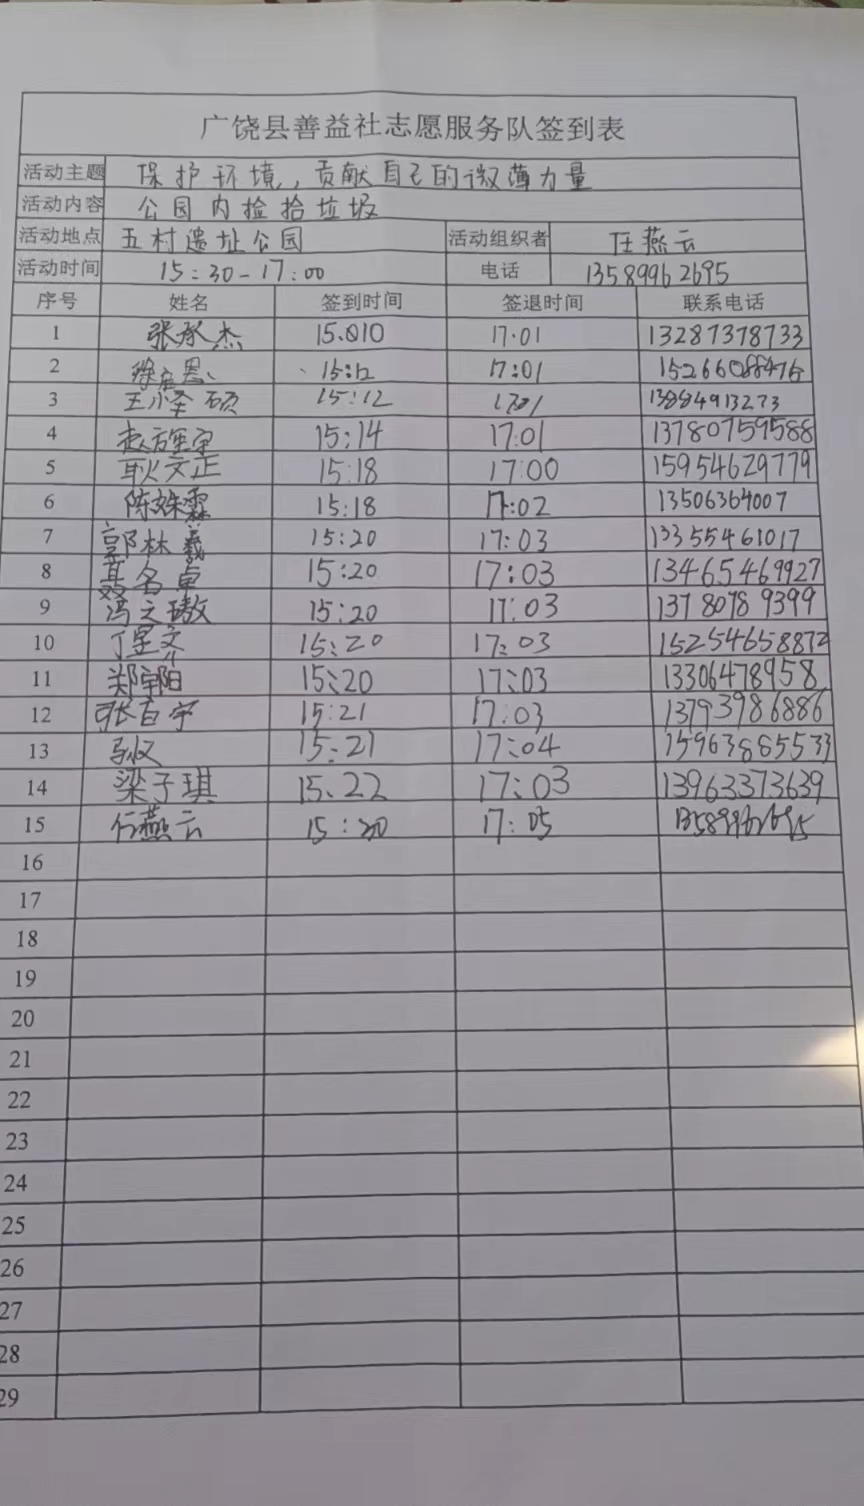 广饶县善益社志愿服务队签到表
活动主题 保护环境，贡献自己的微薄力量
活动内容 公园内捡拾垃圾
活动地点 五村遗址公园 活动组织者 任燕云
活动时间 15:30-17:00 电话 13589962695
序号 姓名 签到时间 签退时间 联系电话
1 张承杰 15:010 17:01 13287378733
2 15:12 17:01
3 15:12 1701 13884913273
4 15:14 17:01 13780759588
5 耿文正 15:18 17:00 15954629779
6 陈姝霖 15:18 17:02 13506364007
7 郭林羲 15:20 17:03 13355461017
8 聂名卓 15:20 17:03 13465469927
9 冯之璈 15:20 17:03 13780789399
10 15:20 17:03 15254658872
11 15:20 17:03 13306478958
12 张百宇 15:21 17:03 13793986886
13 15:21 17:04 15963885533
14 梁子琪 15:22 17:03 13963373639
15 任燕云 17:05
16
17
18
19
20
21
22
23
24
25
26
27
28
29